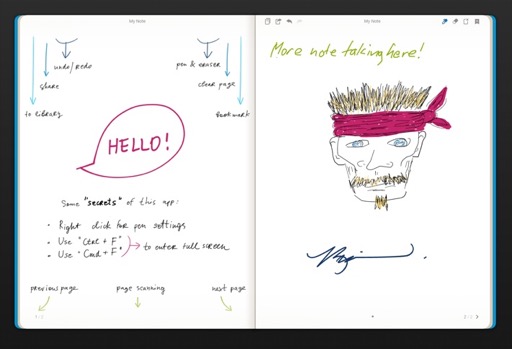 My Note
undo/redo
pen & eraser
share
clear page
to library
bookmark
HELLO!
Some "secrets" of this app:
• Right click for pen settings
• Use "Ctrl + F"
• Use "Cmd + F"
to enter full screen
previous page
page scanning
next page
My Note
More note taking here!